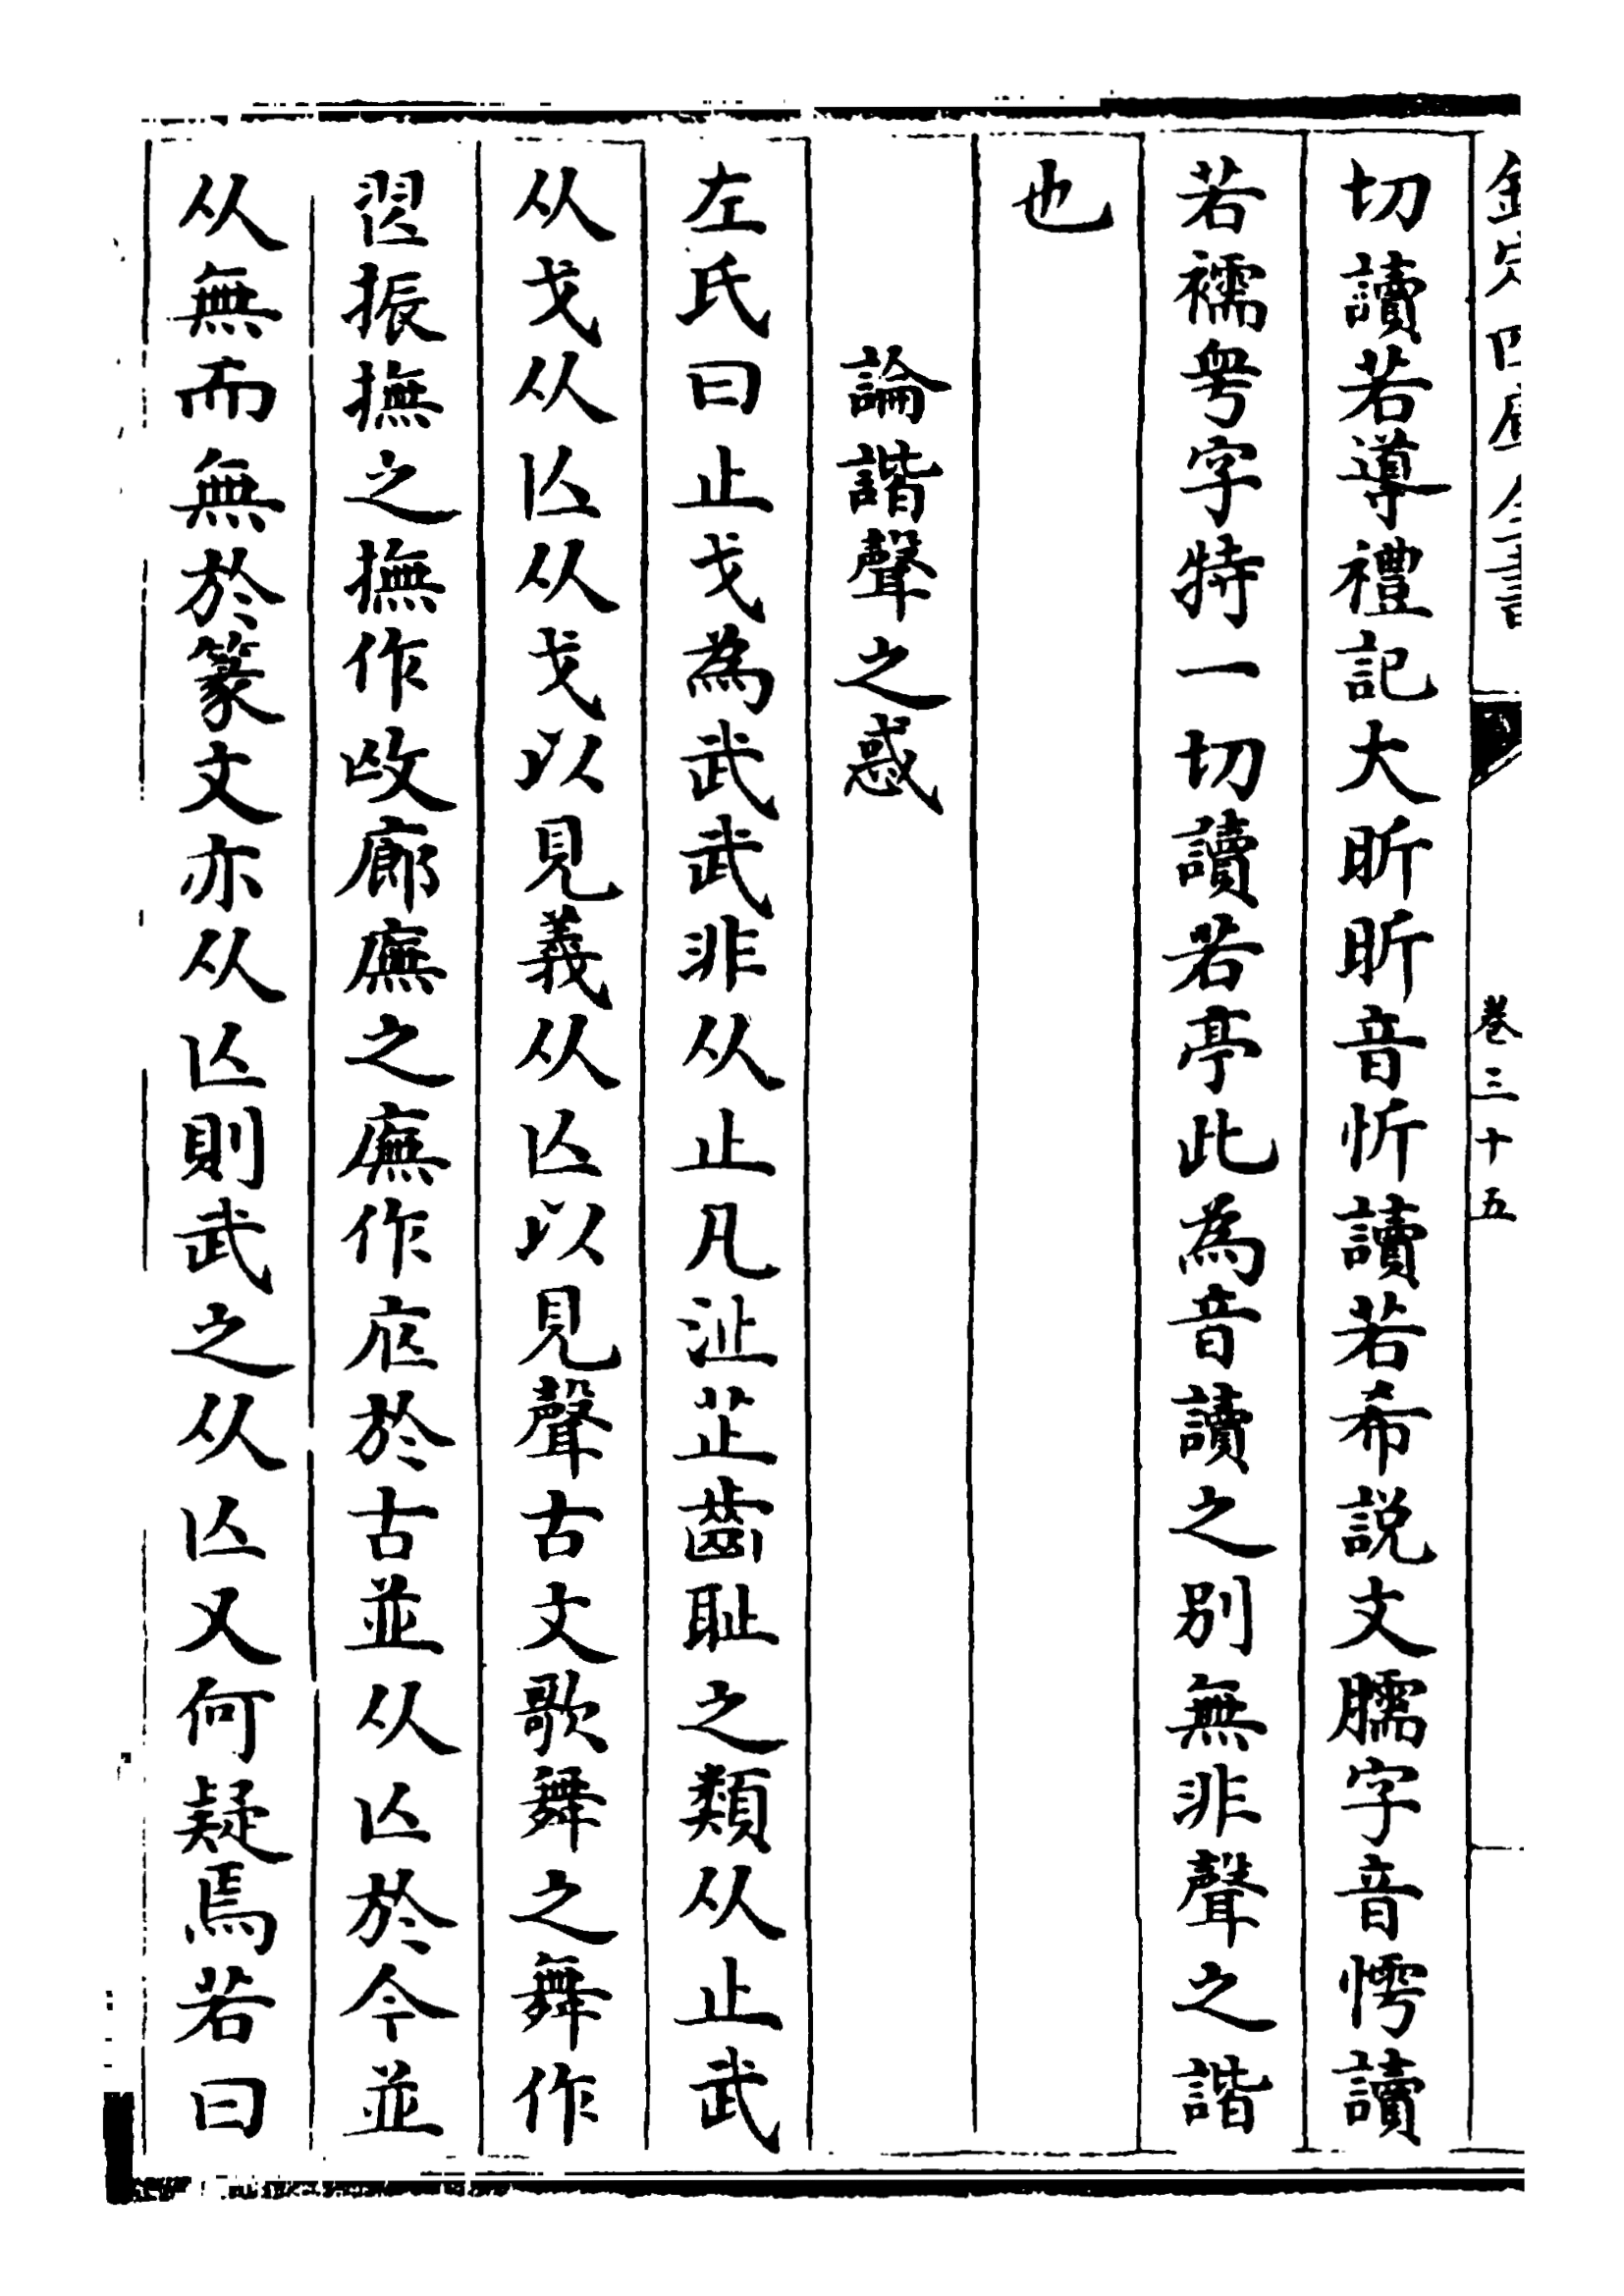 欽定四庫全書
卷三十五
切讀若導禮記大昕昕音忻讀若希説文臑字音愕讀
若襦㖾字特一切讀若亭此為音讀之别無非聲之諧
也
論諧聲之惑
左氏曰止戈為武武非从止凡沚芷齒耻之類从止武
从戈从亾从戈以見義从亾以見聲古文歌舞之舞作
𦐀振撫之撫作㧑廊廡之廡作庑於古並从亾於今並
从無而無於篆文亦从亾則武之从亾又何疑焉若曰